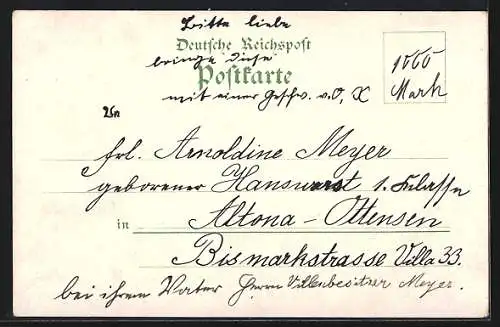 Bitte liebe
Deutsche Reichspost
bringe diese
Postkarte
mit einer Geschw. v. O, X
1000
Mark
An
Frl. Arnoldine Meyer
geborener Hanswurst 1. Klasse
in Altona-Ottensen
Bismarkstrasse Villa 33.
bei ihrem Vater Herrn Villenbesitzer Meyer.